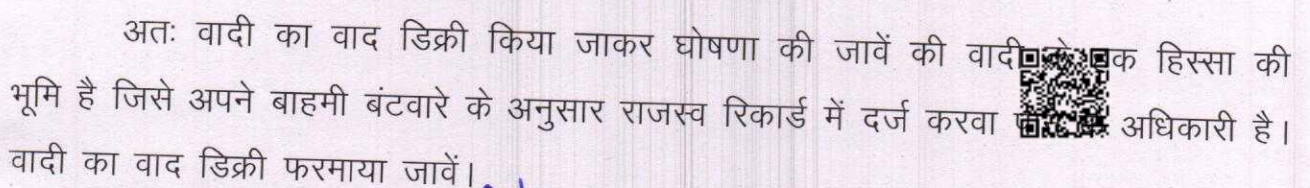 अतः वादी का वाद डिक्री किया जाकर घोषणा की जावें की वादी हिस्सा की
भूमि है जिसे अपने बाहमी बंटवारे के अनुसार राजस्व रिकार्ड में दर्ज करवा अधिकारी है।
वादी का वाद डिक्री फरमाया जावें।